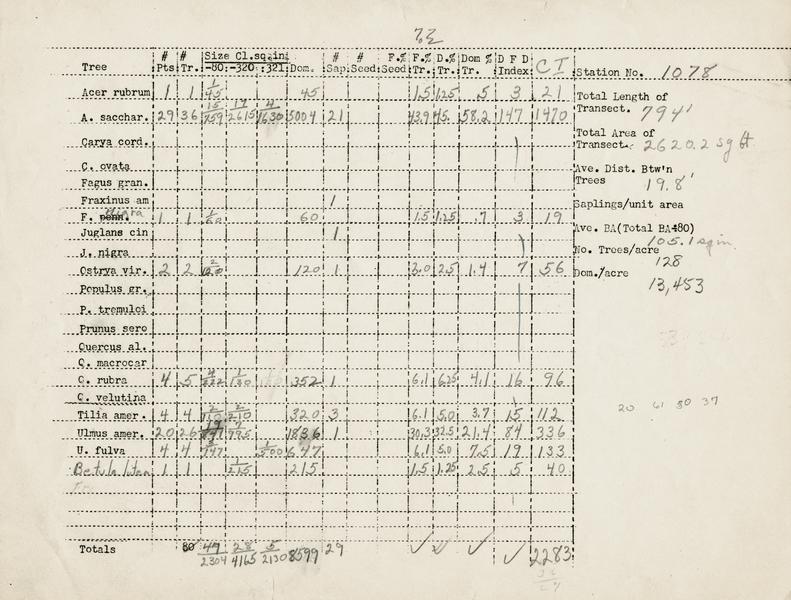 # # Size Cl.sq.in. # # F.% F.% D.% Dom % D F D CI
Tree Pts. Tr. -80 -320 321 Dom. Sap. Seed Seed Tr. Tr. Tr. Index
Station No. 1078
Acer rubrum 1 1 1/45 45 1.5 1.25 .5 3 21
Total Length of
Transect. 794'
A. sacchar. 29 36 15/759 17/2615 4/1630 5004 21 43.9 45. 58.2 147 1470
Total Area of
Transect. 2620.2 sq ft
Carya cord.
C. ovata
Ave. Dist. Btw'n
Trees 19.8'
Fagus gran.
Fraxinus am 1
Saplings/unit area
F. penn. nigra 1 1 1/60 60 1.5 1.25 .7 3 19
Juglans cin 1
Ave. BA(Total BA÷80)
105.1 sq in.
J. nigra
No. Trees/acre
128
Ostrya vir. 2 2 2/120 120 1 3.0 2.5 1.4 7 56
Dom./acre
13,453
Populus gr.
P. tremuloi
Prunus sero
Quercus al.
Q. macrocar
Q. rubra 4 5 4/222 1/130 352 1 6.1 6.25 4.1 16 96
Q. velutina
20 61 50 37
Tilia amer. 4 4 2/110 2/210 320 3 6.1 5.0 3.7 15 112
Ulmus amer. 20 26 19/841 7/995 1836 1 30.3 32.5 21.4 84 336
U. fulva 4 4 3/147 1/500 647 6.1 5.0 7.5 19 133
1 1 1/215 215 1.5 1.25 2.5 5 40
Totals 80 47/2304 28/4165 5/2130 8599 29 ✓ ✓ ✓ ✓ 2283